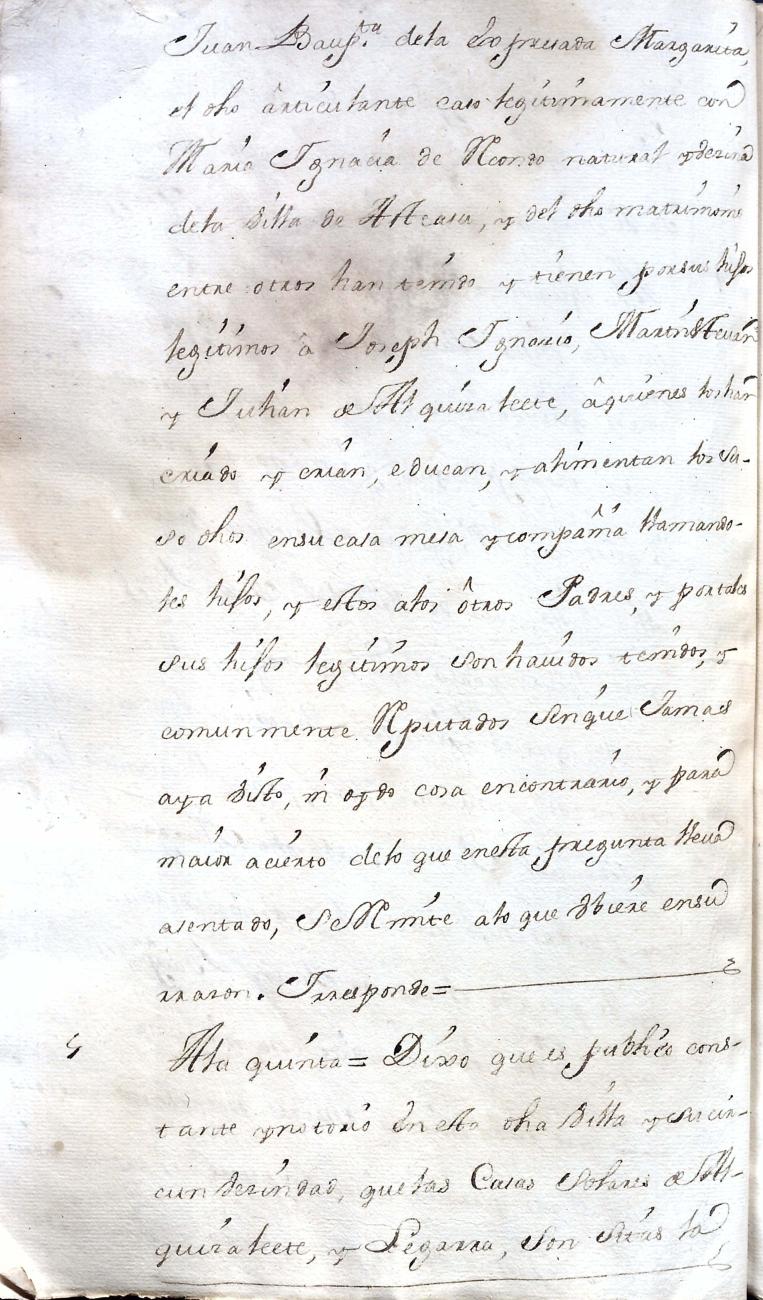 Juan Baupta. dela Expresada Margarita,
el dho ârticulante caso legitimamente con
Maria Ignacia de Recondo natural y vezina
dela Villa de Atteasu, y del dho matrimonio
entre otros han tenido y tienen por sus hijos
legitimos â Joseph Ignacio, Martin Estevan
y Julian de Alquizaleete, âquienes los han
criado y crian, educan, y alimentan los su-
so dhos ensu casa mesa y compañia llamando-
les hijos, y estos alos ôtros Padres, y portales
sus hijos legitimos son hauidos tenidos, y
comunmente Reputados sinque Jamas
aya visto, ni oydo cosa encontrario, y para
maior acierto delo que enesta pregunta lleva
asentado, se Remite alo que obiere ensu
rrazon. Yrresponde=
5 Ala quinta= Dixo que es publico cons-
tante ynotorio En esta dha Villa y sucir-
cunvezindad, quelas Casas Solares de Al-
quizaleete, y Legarra, son sitas la